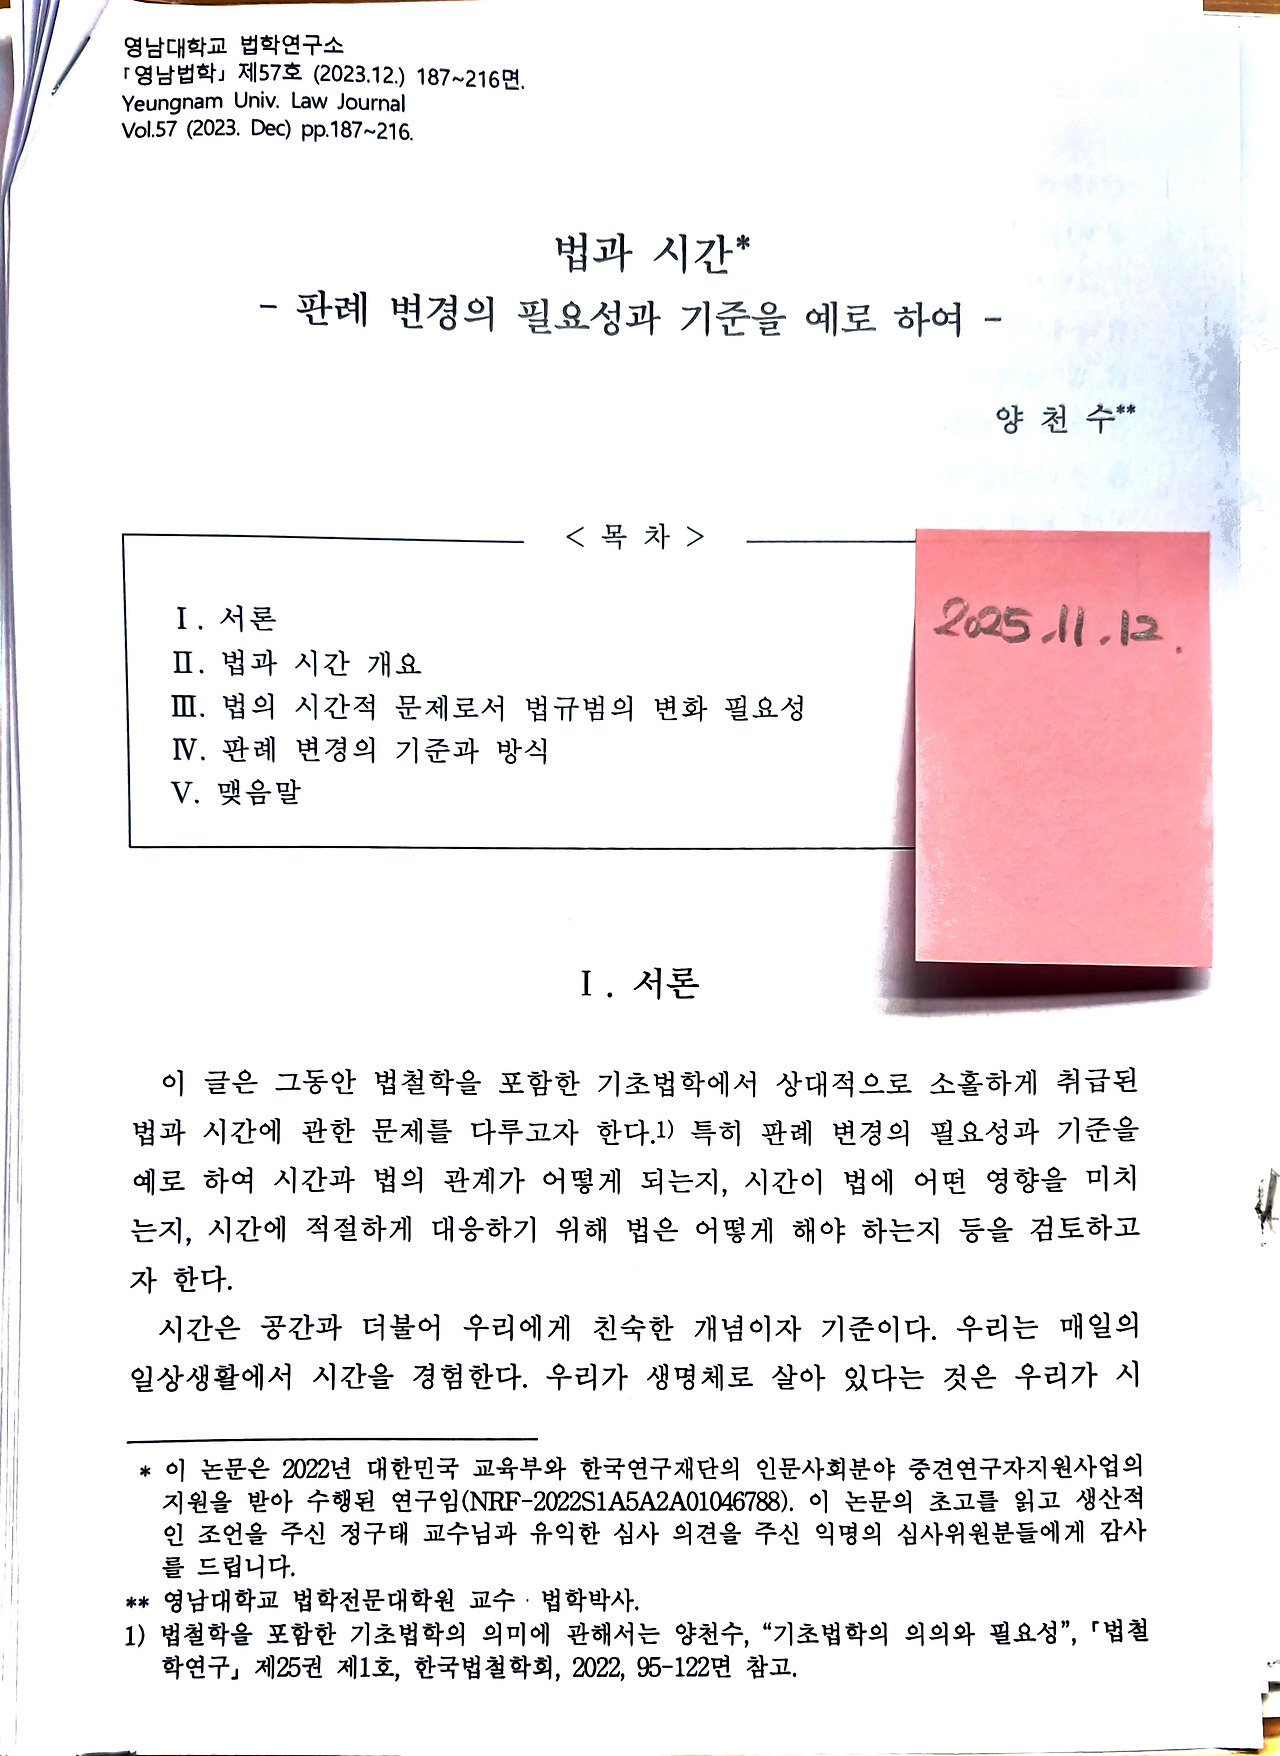 영남대학교 법학연구소
「영남법학」 제57호 (2023.12.) 187~216면.
Yeungnam Univ. Law Journal
Vol.57 (2023. Dec) pp.187~216.
법과 시간*
- 판례 변경의 필요성과 기준을 예로 하여 -
양 천 수**
< 목 차 >
Ⅰ. 서론
Ⅱ. 법과 시간 개요
Ⅲ. 법의 시간적 문제로서 법규범의 변화 필요성
Ⅳ. 판례 변경의 기준과 방식
Ⅴ. 맺음말
2025.11.12.
Ⅰ. 서론
이 글은 그동안 법철학을 포함한 기초법학에서 상대적으로 소홀하게 취급된
법과 시간에 관한 문제를 다루고자 한다.1) 특히 판례 변경의 필요성과 기준을
예로 하여 시간과 법의 관계가 어떻게 되는지, 시간이 법에 어떤 영향을 미치
는지, 시간에 적절하게 대응하기 위해 법은 어떻게 해야 하는지 등을 검토하고
자 한다.
시간은 공간과 더불어 우리에게 친숙한 개념이자 기준이다. 우리는 매일의
일상생활에서 시간을 경험한다. 우리가 생명체로 살아 있다는 것은 우리가 시
* 이 논문은 2022년 대한민국 교육부와 한국연구재단의 인문사회분야 중견연구자지원사업의
지원을 받아 수행된 연구임(NRF-2022S1A5A2A01046788). 이 논문의 초고를 읽고 생산적
인 조언을 주신 정구태 교수님과 유익한 심사 의견을 주신 익명의 심사위원분들에게 감사
를 드립니다.
** 영남대학교 법학전문대학원 교수·법학박사.
1) 법철학을 포함한 기초법학의 의미에 관해서는 양천수, “기초법학의 의의와 필요성”, 「법철
학연구」 제25권 제1호, 한국법철학회, 2022, 95-122면 참고.